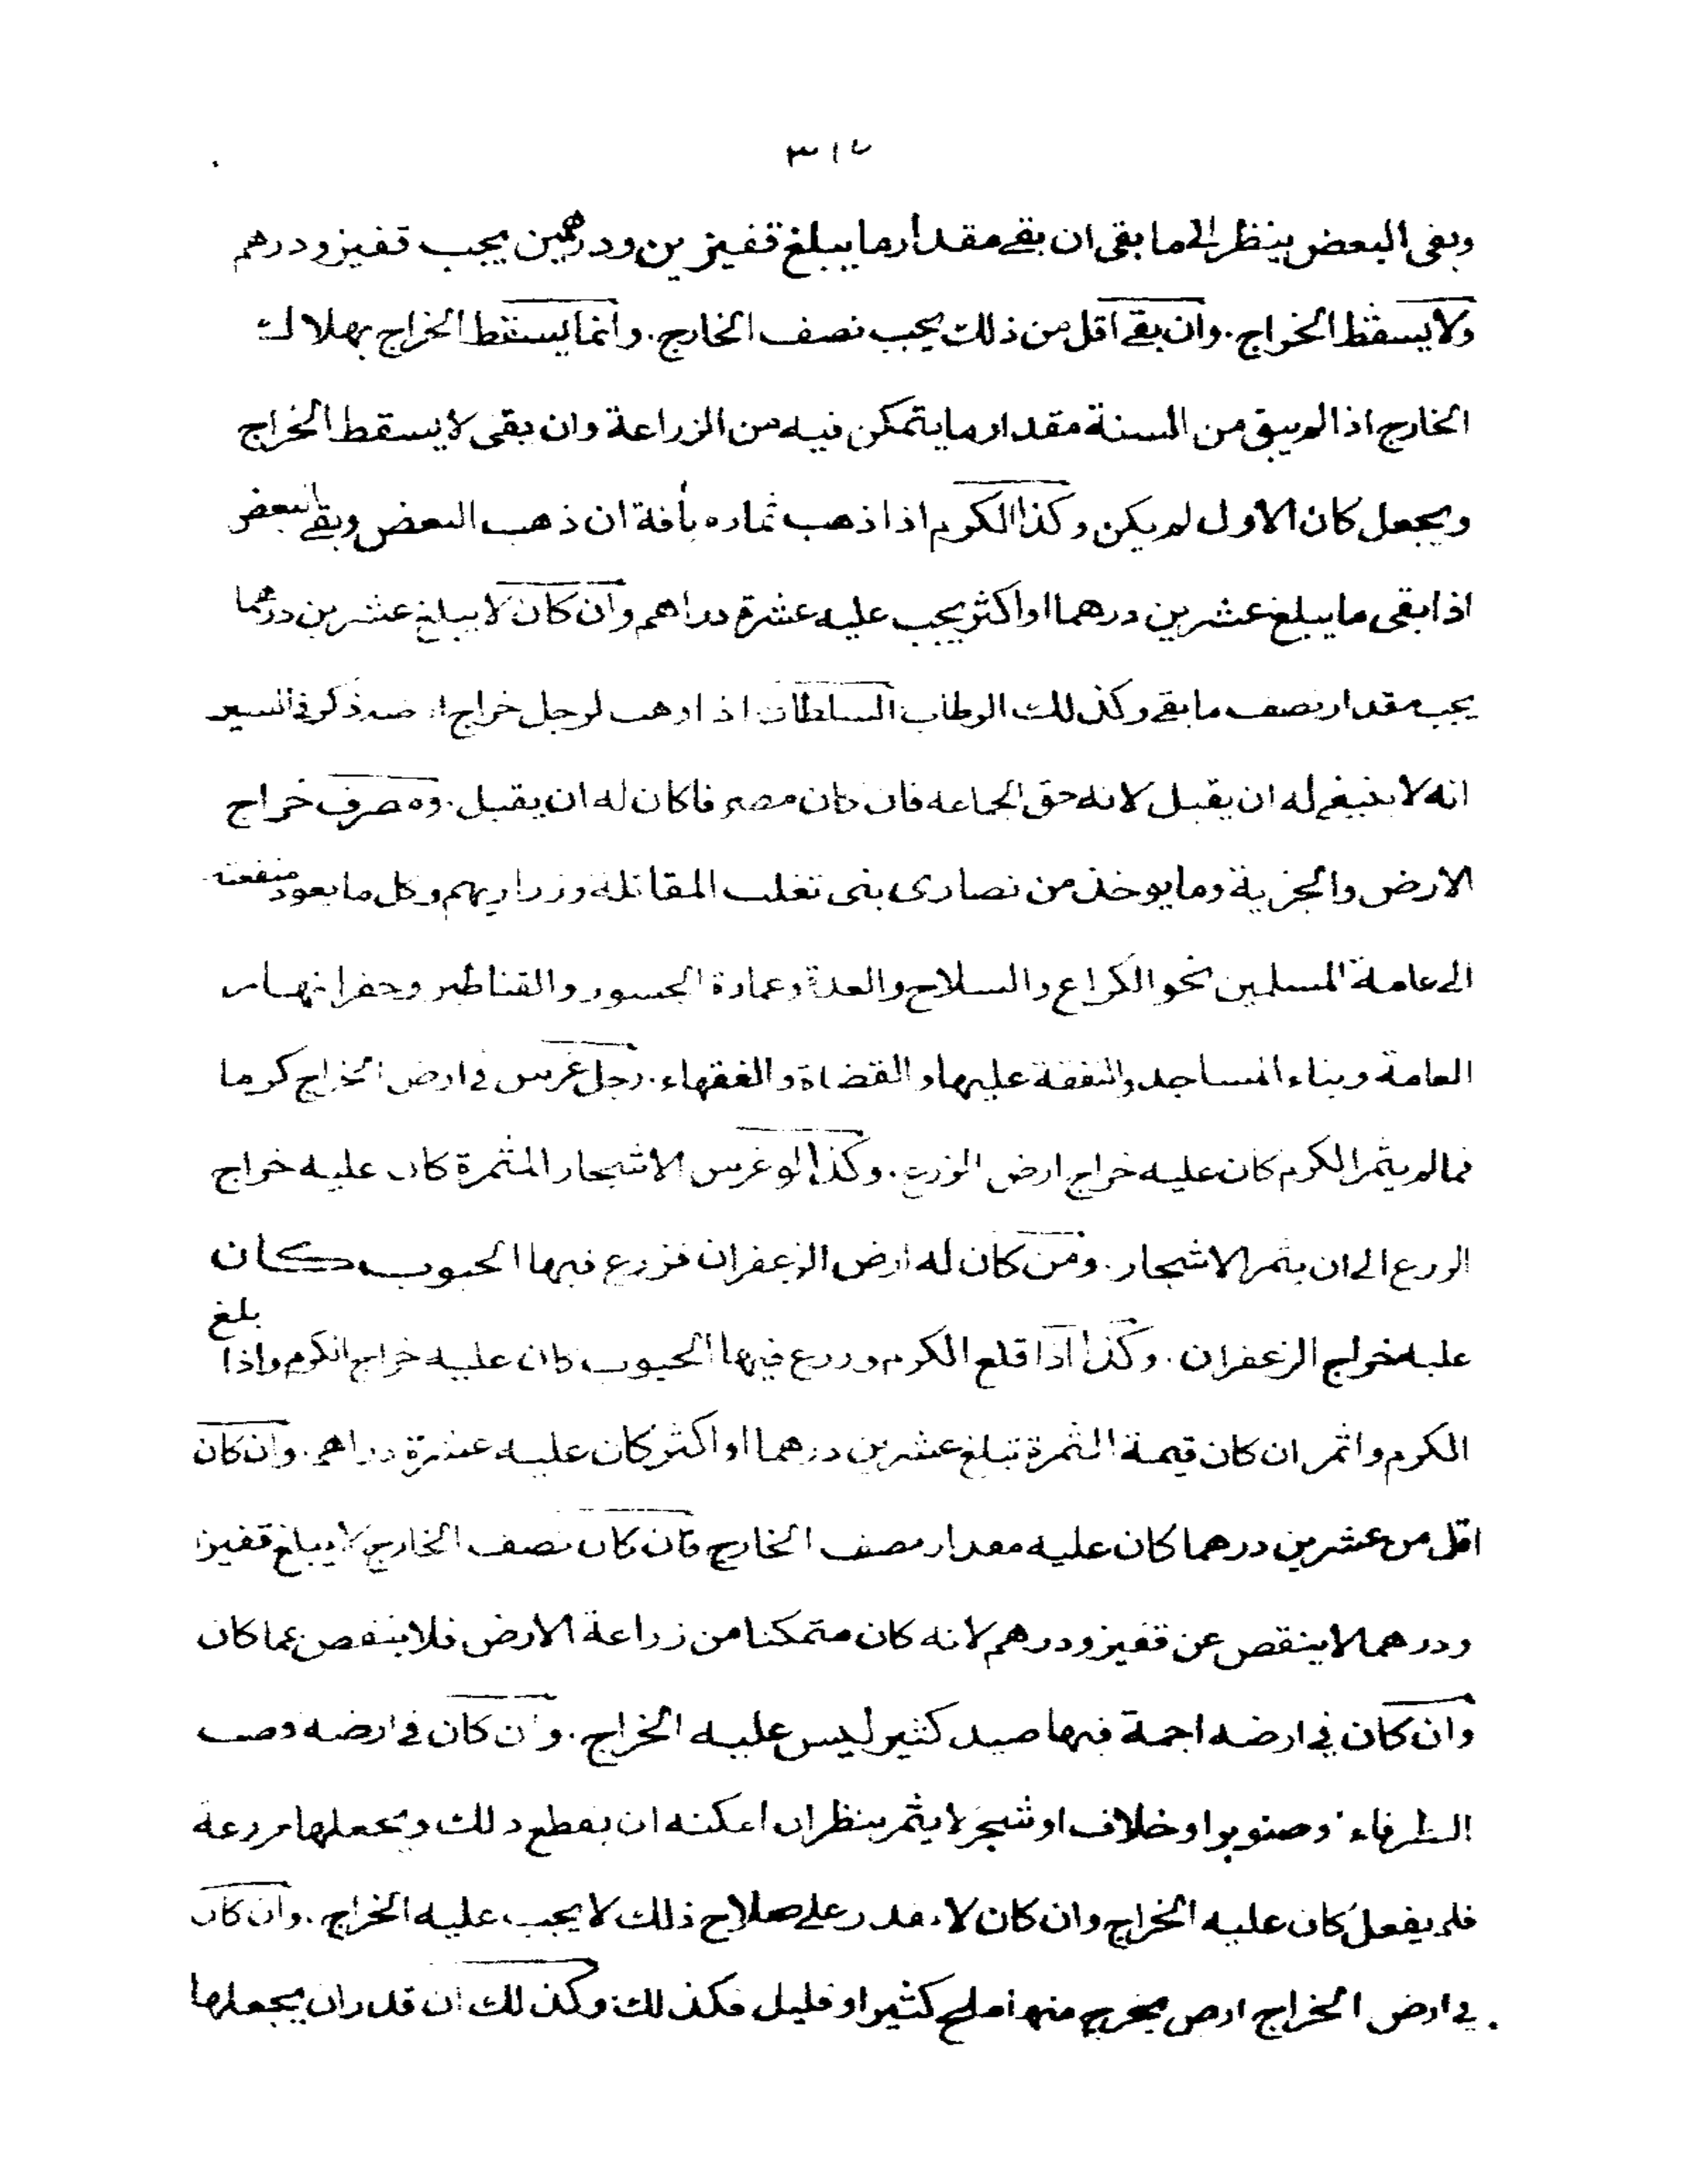 وبقى البعض ينظر الى ما بقى ان بقى مقدار ما يبلغ قفيزين ودرهمين يجب قفيز ودرهم
ولا يسقط الخراج. وان بقى اقل من ذلك يجب نصف الخارج. وانما يسقط الخراج بهلاك
الخارج اذا لم يبق من السنة مقدار ما يتمكن فيه من الزراعة وان بقى لا يسقط الخراج
ويجعل كان الاول لم يكن وكذا الكرم اذا ذهب ثماره بأفة ان ذهب البعض وبقى البعض
اذا بقى ما يبلغ عشرين درهما او اكثر يجب عليه عشرة دراهم وان كان لا يبلغ عشرين درهما
يجب مقدار نصف ما بقى وكذلك الرطاب السلطان اذا وهب لرجل خراج ارضه ذكر فى السير
انه لا ينبغى له ان يقبل لانه حق الجماعه فان كان مصرفا كان له ان يقبل. ومصرف خراج
الارض والجزية وما يوخذ من نصارى بنى تغلب المقاتلة وزراريهم وكل ما يعود منفعته
الى عامة المسلمين نحو الكراع والسلاح والعدة وعمارة الجسور والقناطر وحفر انهار
العامة وبناء المساجد والنفقة عليها والقضاة والفقهاء. رجل غرس فى ارض الخراج كرما
فما لم يثمر الكرم كان عليه خراج ارض الزرع. وكذا لو غرس الاشجار المثمرة كان عليه خراج
الزرع الى ان يثمر الاشجار. ومن كان له ارض الزعفران فزرع فيها الحبوب كان
عليه خراج الزعفران. وكذا اذا قلع الكرم وزرع فيها الحبوب كان عليه خراج الكرم واذا بلغ
الكرم واثمر ان كان قيمة الثمرة تبلغ عشرين درهما او اكثر كان عليه عشرة دراهم. وان كان
اقل من عشرين درهما كان عليه مقدار نصف الخارج فان كان نصف الخارج لا يبلغ قفيزا
ودرهما لا ينقص عن قفيز ودرهم لانه كان متمكنا من زراعة الارض فلا ينقص عما كان
وان كان فى ارضه اجمة فيها صيد كثير ليس عليه الخراج. وان كان فى ارضه قصب
الطرفاء وصنوبر او خلاف او شجر لا يثمر ينظر ان امكنه ان يقطع ذلك ويجعلها مزرعة
فلم يفعل كان عليه الخراج وان كان لا يقدر على صلاح ذلك لا يجب عليه الخراج. وان كان
فى ارض الخراج ارض يخرج منها ملح كثير او قليل فكذلك وكذلك ان قدر ان يجعلها